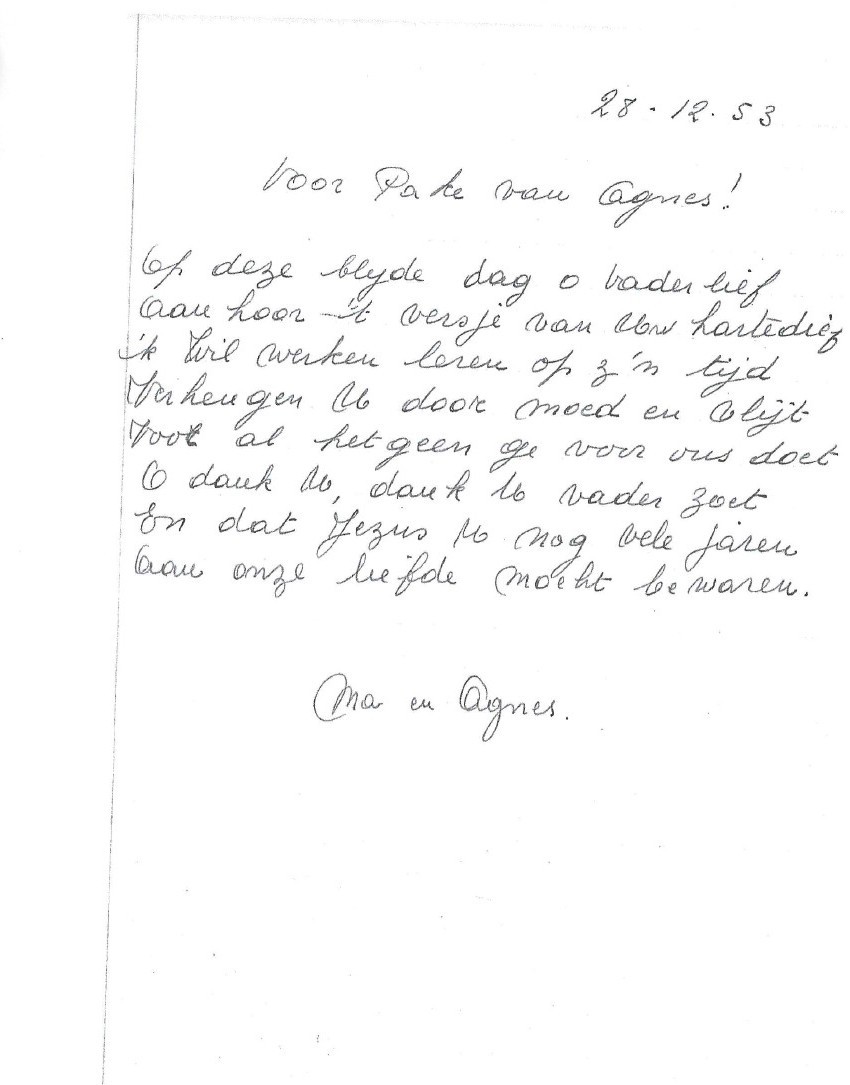 28-12.53
Voor Pa ke van Agnes!
Op deze blyde dag o vader lief
Aan hoor 't versje van Uw hartedief
ik Wil werken leren op z'n tijd
Verheugen U door moed en vlijt
Voor al het geen ge voor ons doet
O dank U, dank U vader zoet
En dat Jezus U nog vele jaren
Aan onze liefde mocht be waren.
Ma en Agnes.